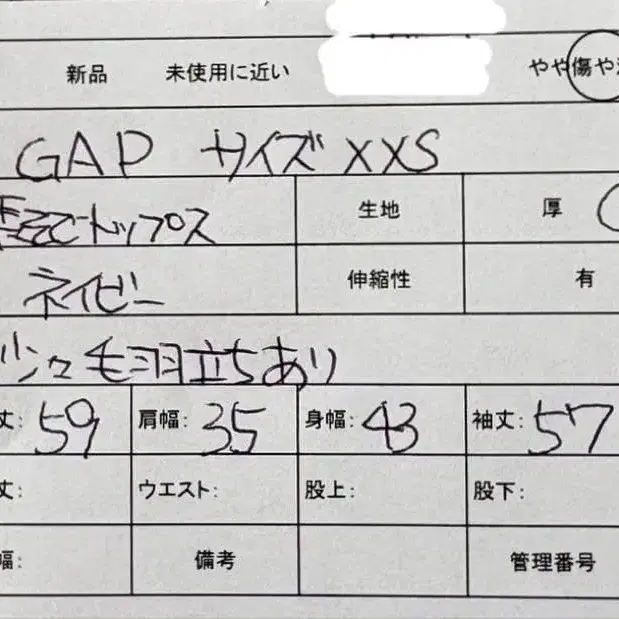 新品 未使用に近い やや傷や
GAP サイズ XXS
トップス 生地 厚
ネイビー 伸縮性 有
少々毛羽立ちあり
丈: 59 肩幅: 35 身幅: 43 袖丈: 57
丈: ウエスト: 股上: 股下:
幅: 備考 管理番号